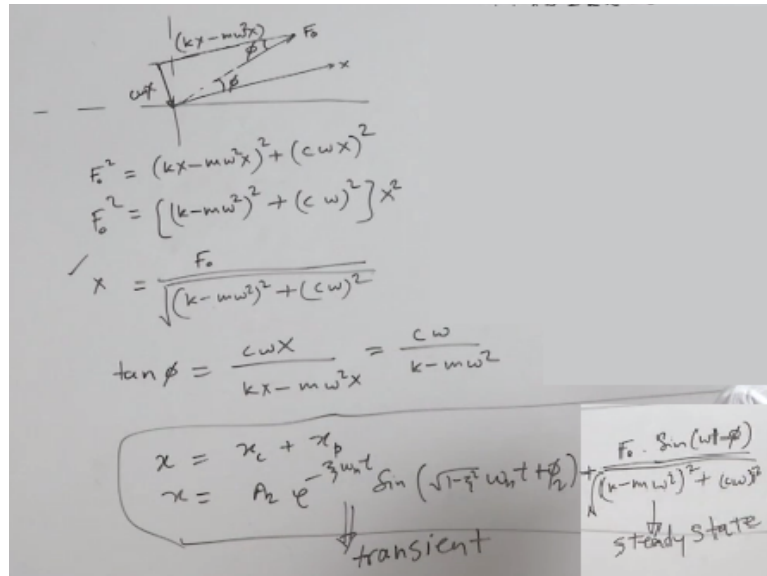 (kx-mω²x)
F₀
φ
cωx
φ
x
F₀² = (kx-mω²x)² + (cωx)²
F₀² = [(k-mω²)² + (cω)²] x²
✓ x = F₀ / √((k-mω²)² + (cω)²)
tan φ = cωx / (kx-mω²x) = cω / (k-mω²)
x = x_c + x_p
x = A₂ e^(-ξω_n t) Sin (√(1-ξ²) ω_n t + φ₂) + F₀ . Sin(ωt-φ) / √((k-mω²)² + (cω)²)
transient
steady state